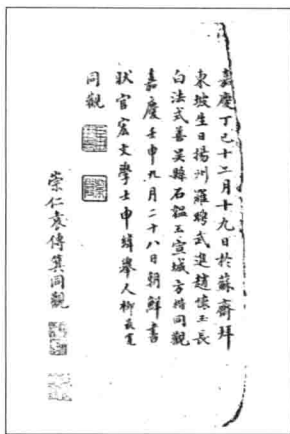 嘉慶丁巳十二月十九日於蘇齋拜
東坡生日揚州羅聘武進趙懷玉長
白法式善吳縣石韞玉宣城方楷同觀
嘉慶壬申九月二十八日朝鮮書
狀官宏文學士申緯舉人柳最寬
同觀
崇仁袁傳箕同觀